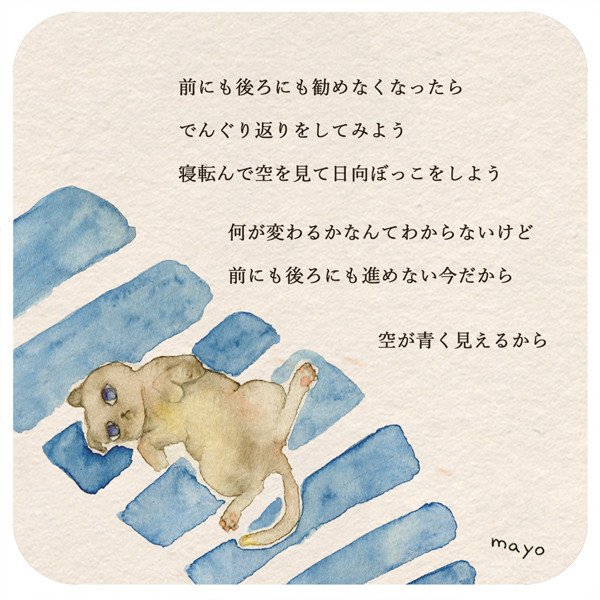 前にも後ろにも勧めなくなったら
でんぐり返りをしてみよう
寝転んで空を見て日向ぼっこをしよう
何が変わるかなんてわからないけど
前にも後ろにも進めない今だから
空が青く見えるから
mayo